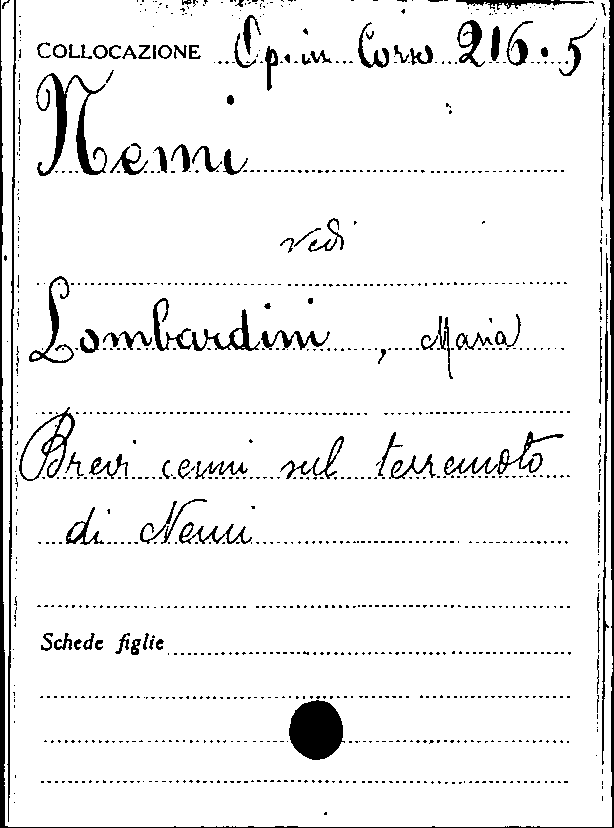 COLLOCAZIONE Op. in Corso 216.5
Nemi
vedi
Lombardini, Maria
Brevi cenni sul terremoto
di Nemi
Schede figlie